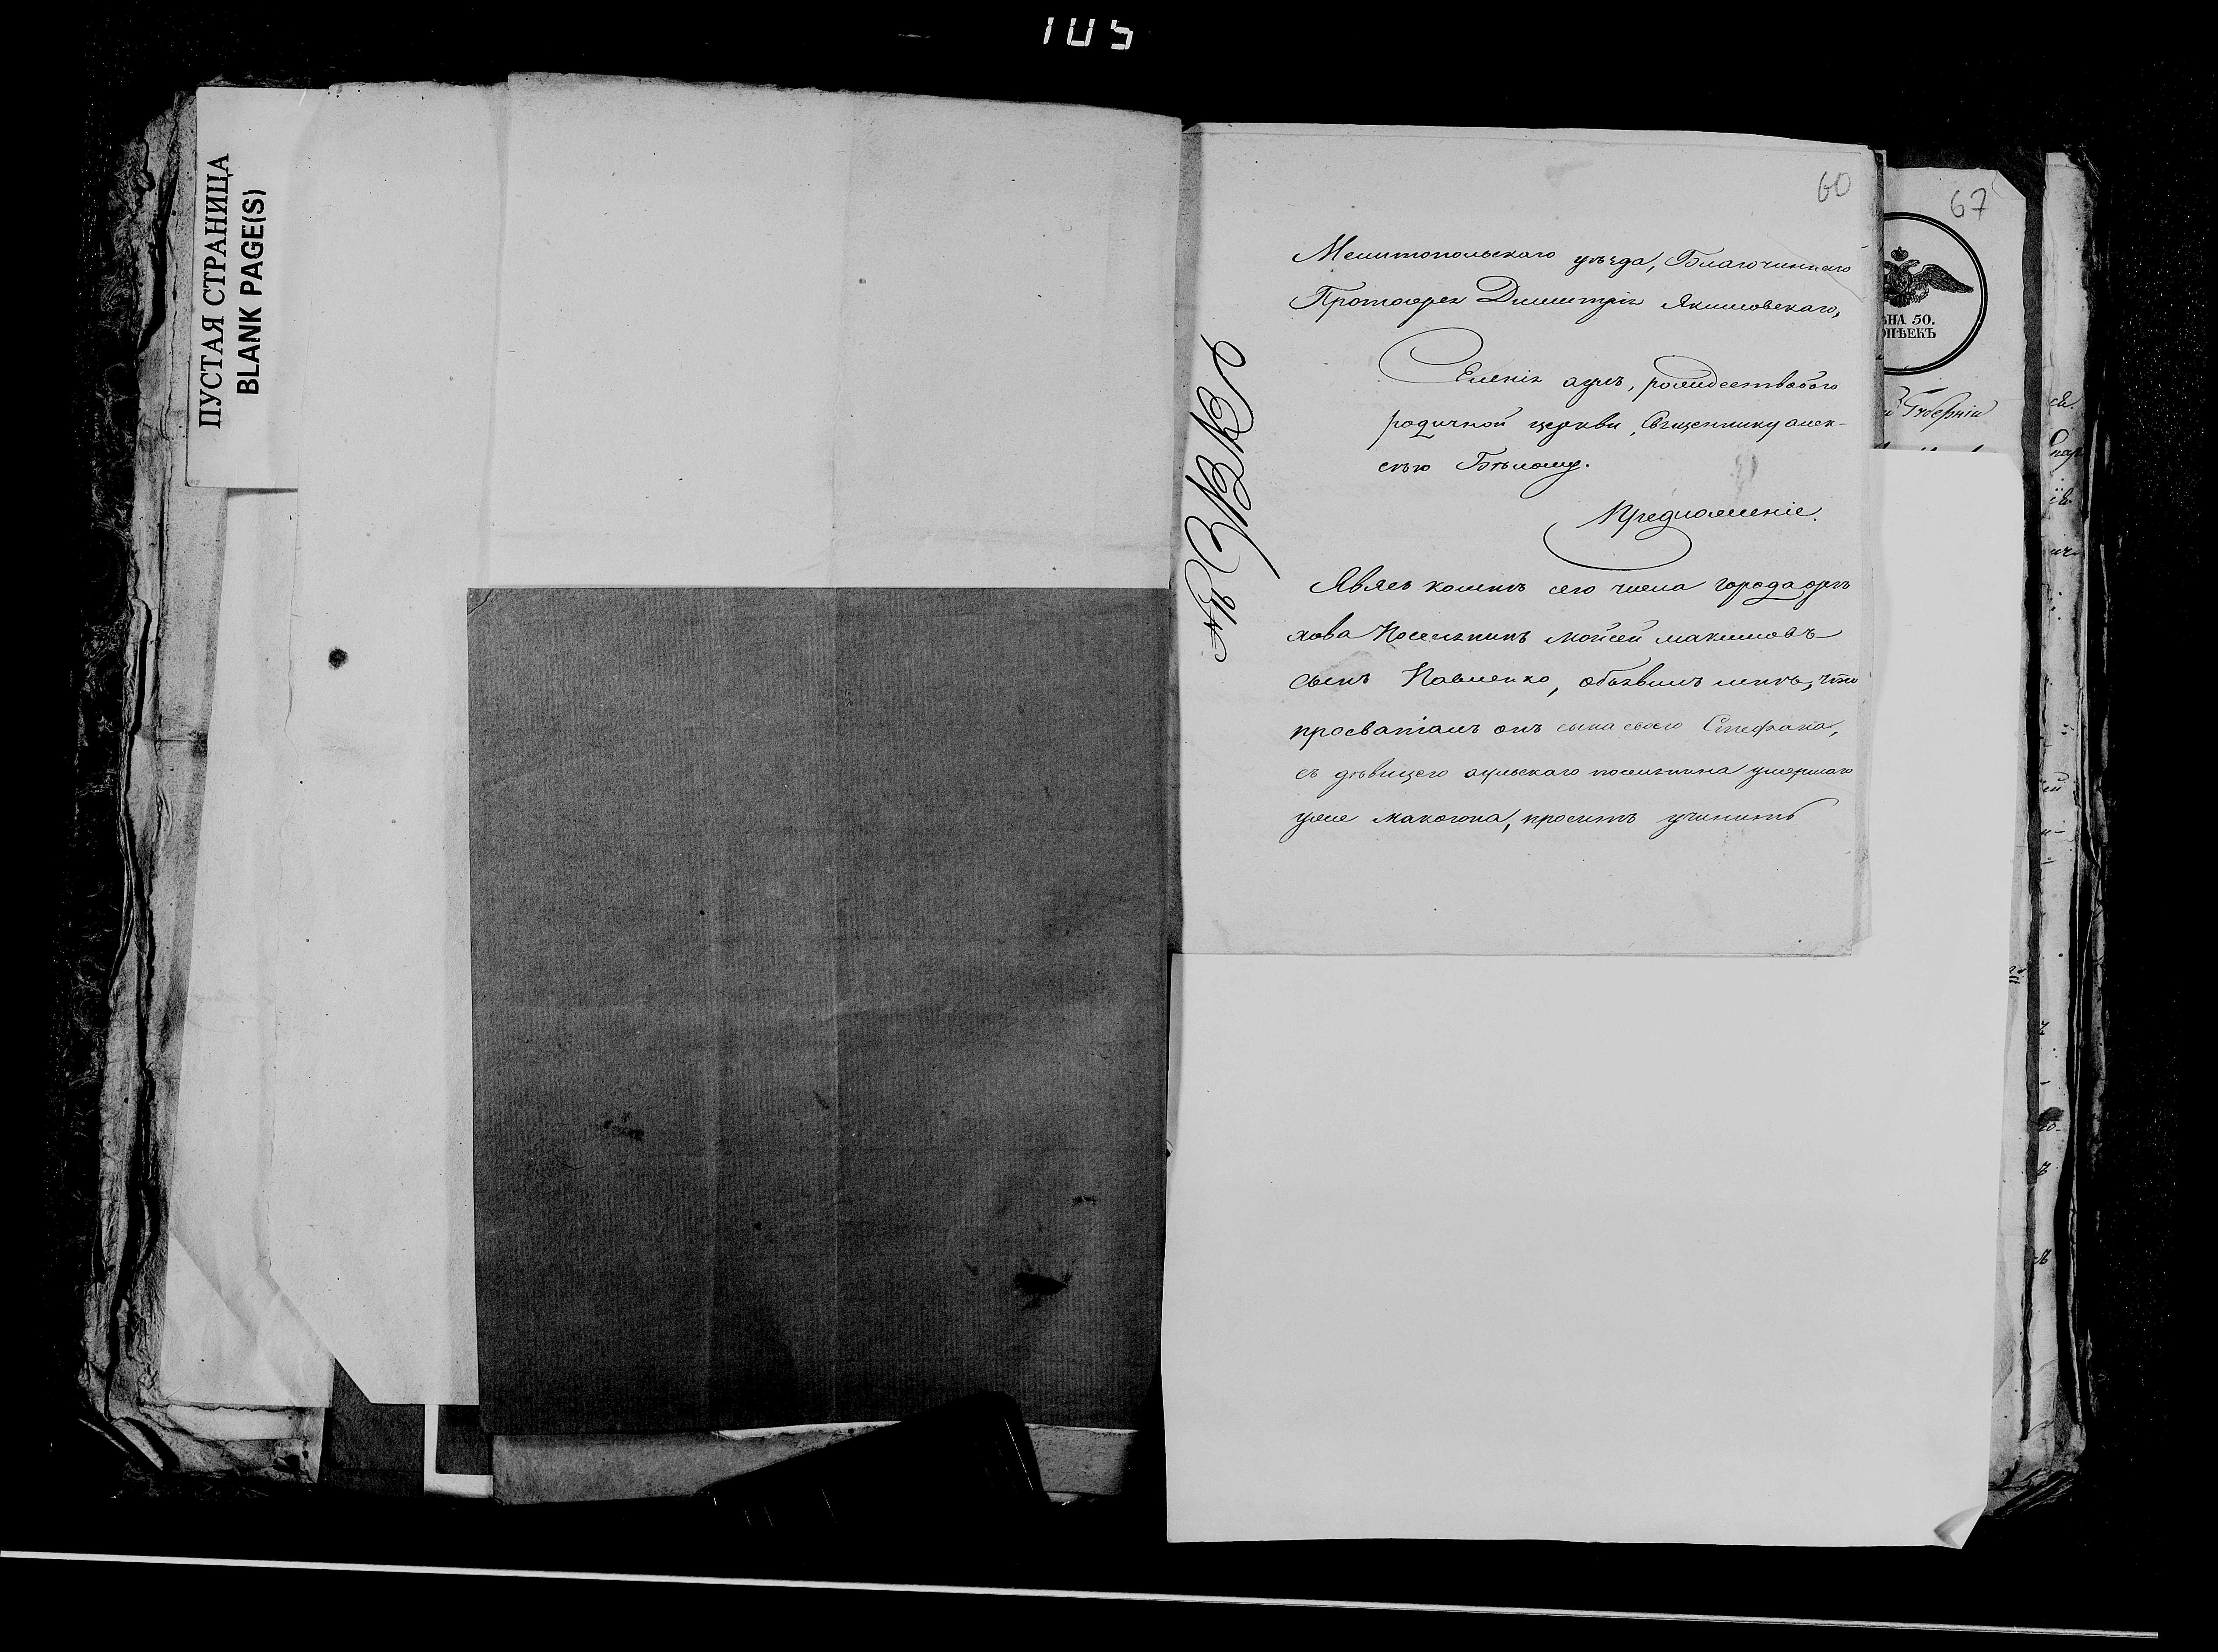 105
ПУСТАЯ СТРАНИЦА
BLANK PAGE(S)
60
Мелитопольскаго уѣзда, Благочиннаго
Протоерея Димитрія Якимовскаго,
Селенія аулъ, рождествобого
родичной церкви, Священнику алек-
сѣю Бѣлому.
Предложеніе.
Явясь комнѣ сего числа города орѣ
хова Поселянинъ мойсей максимовъ
сынъ Павленко, объявилъ мнѣ, что
просваталъ онъ сына своего Стефана,
съ дѣвицею аульскаго поселянина умершаго
уже макогона, проситъ учинить
67
ЦѢНА 50.
КОПѢЕКЪ
Губерніи